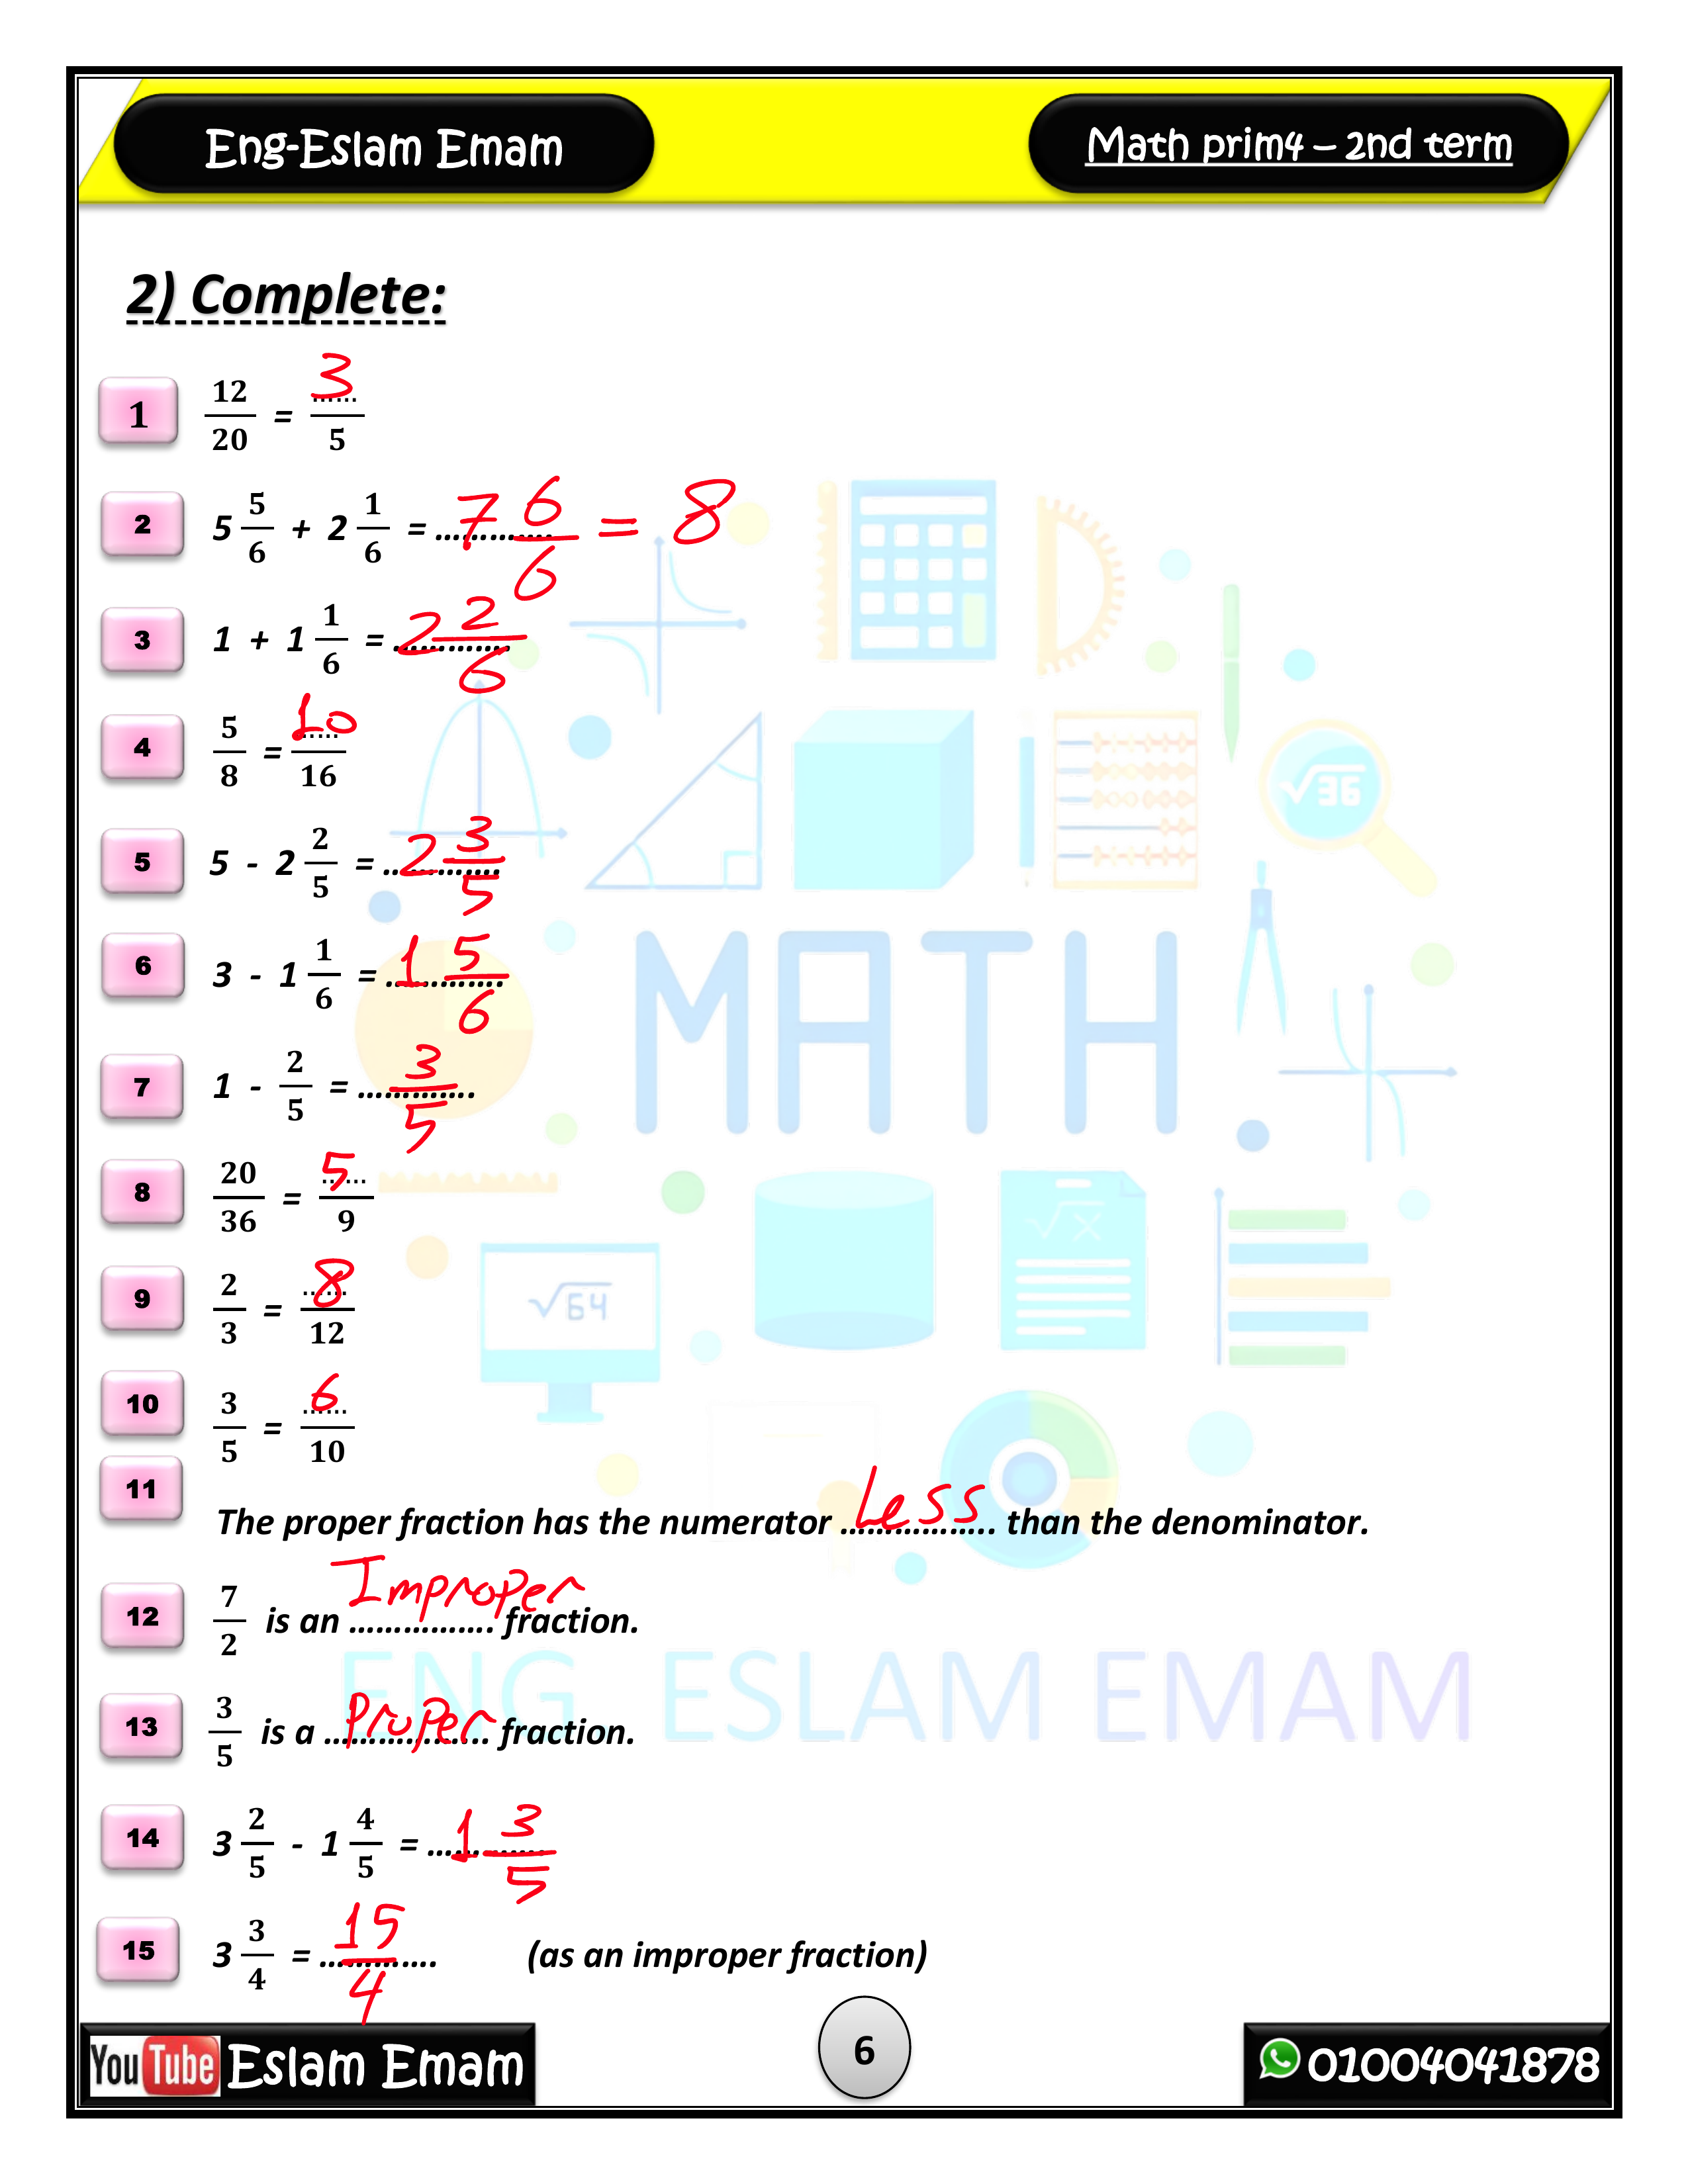 Eng-Eslam Emam
Math prim4 – 2nd term
2) Complete:
1 12/20 = 3....../5
2 5 5/6 + 2 1/6 = ............. 7 6/6 = 8
3 1 + 1 1/6 = ............. 2 2/6
4 5/8 = 10....../16
5 5 - 2 2/5 = ............. 2 3/5
6 3 - 1 1/6 = ............. 1 5/6
7 1 - 2/5 = ............. 3/5
8 20/36 = 5....../9
9 2/3 = 8....../12
10 3/5 = 6....../10
11 The proper fraction has the numerator Less ................. than the denominator.
12 7/2 is an Improper ................ fraction.
13 3/5 is a Proper .................. fraction.
14 3 2/5 - 1 4/5 = ............. 1 3/5
15 3 3/4 = ............. 15/4 (as an improper fraction)
MATH
√36
√64
√x
ENG ESLAM EMAM
YouTube Eslam Emam
6
01004041878